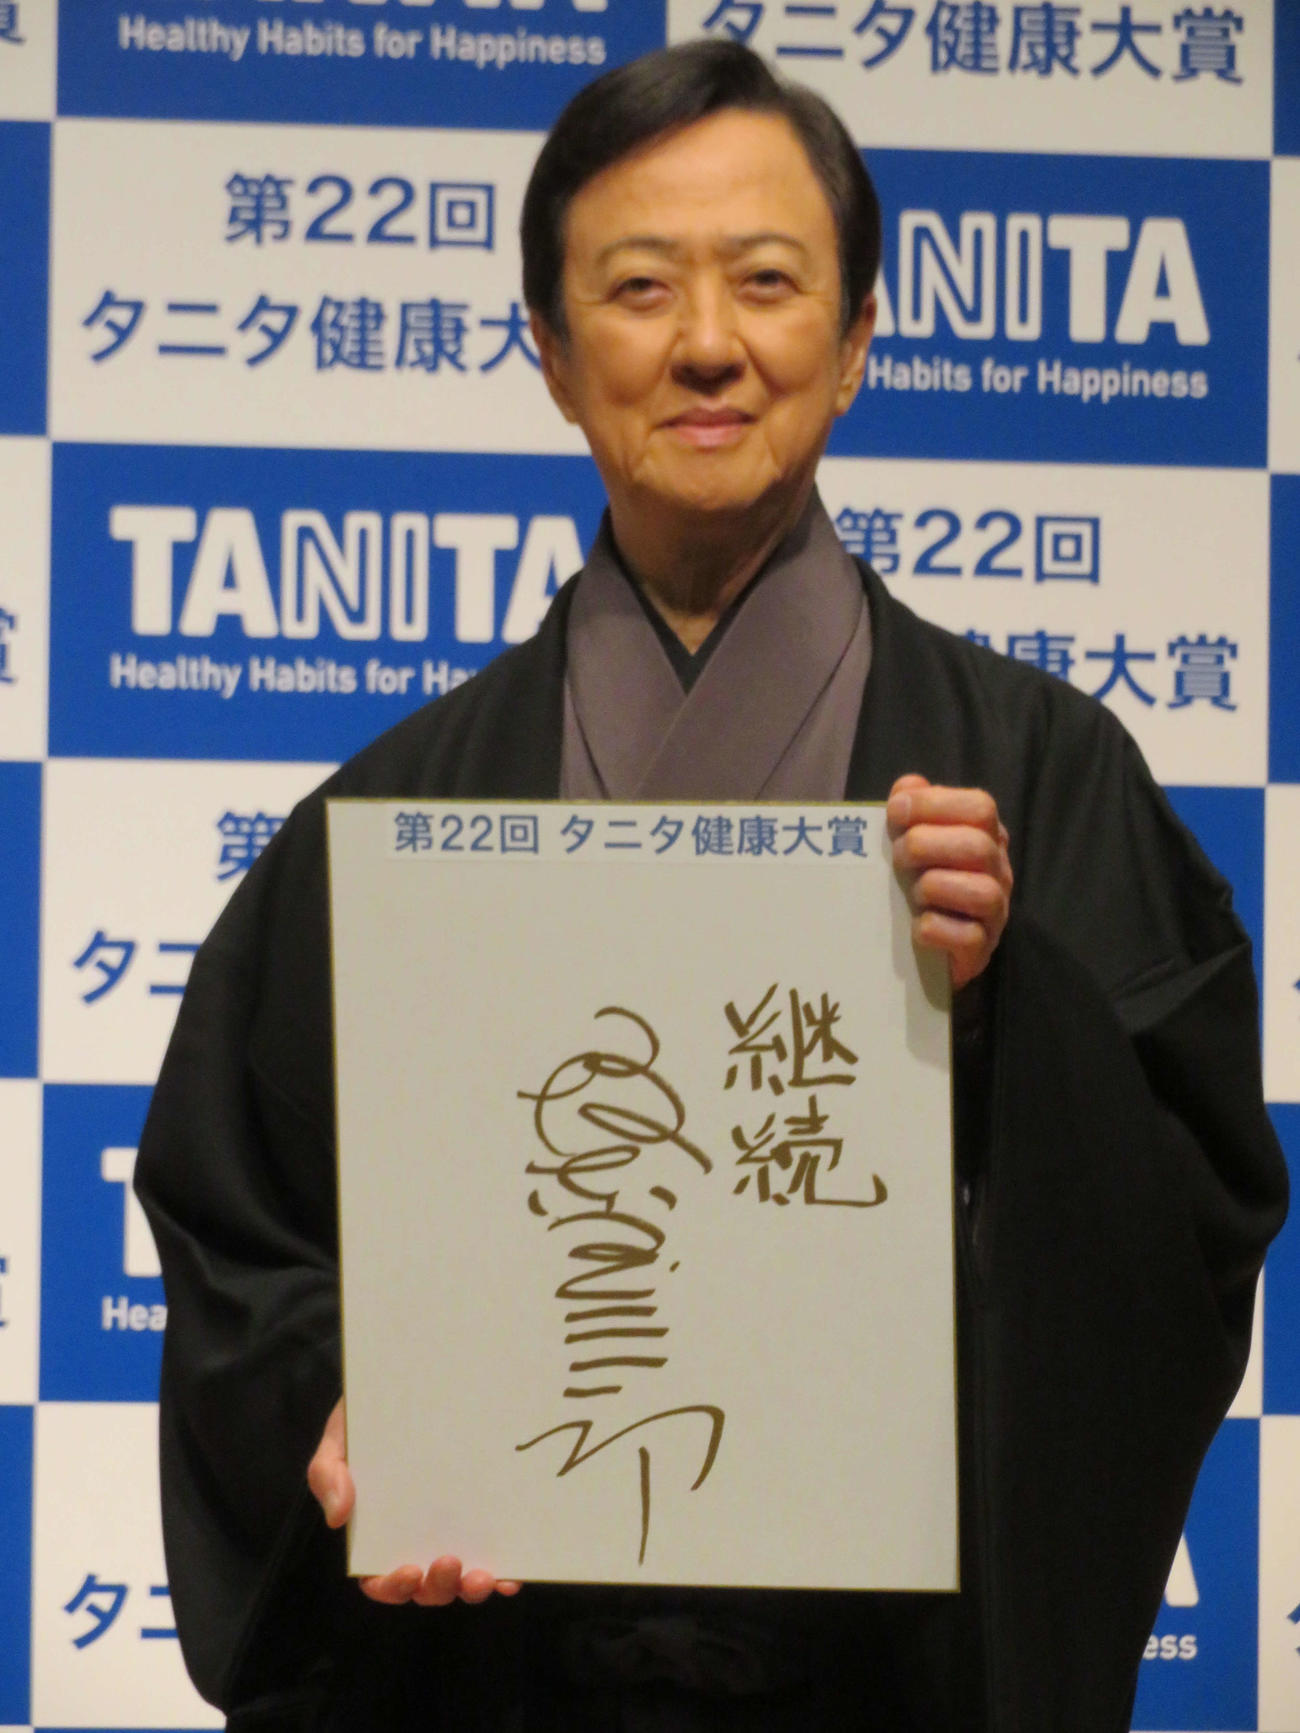 Healthy Habits for Happiness
タニタ健康大賞
第22回
タニタ健康大
ANITA
Habits for Happiness
TANITA
Healthy Habits for Ha
第22回
健康大賞
第
タニ
第22回 タニタ健康大賞
継続
Hea
タニ
ess